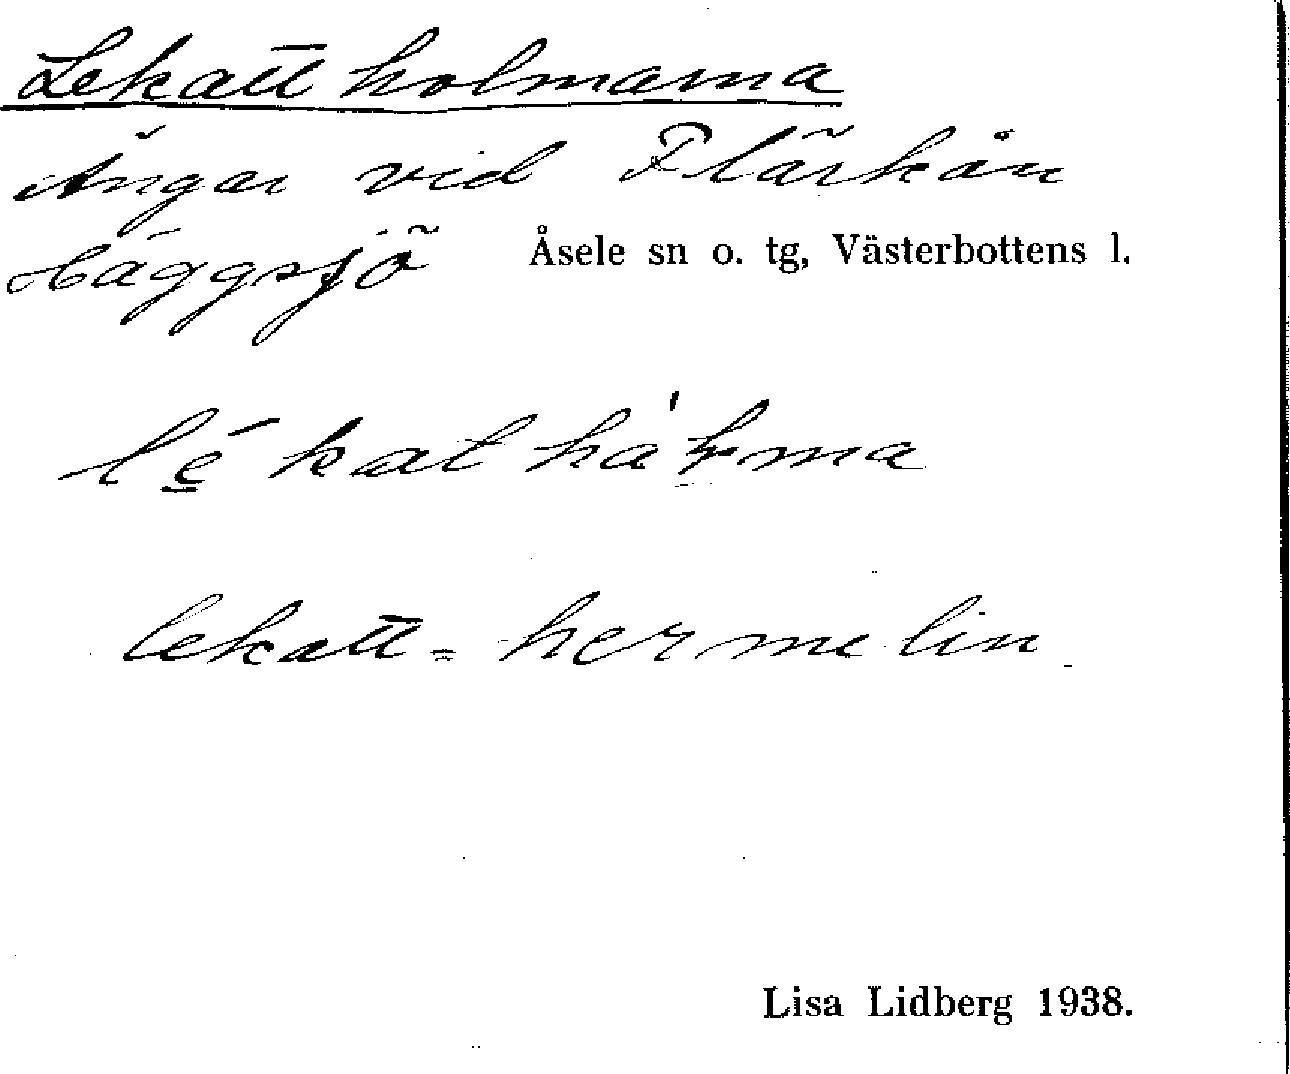 Lekattholmarna
Ängar vid Flärkån
Häggsjö Åsele sn o. tg, Västerbottens l.
lekatt = hermelin
Lisa Lidberg 1938.